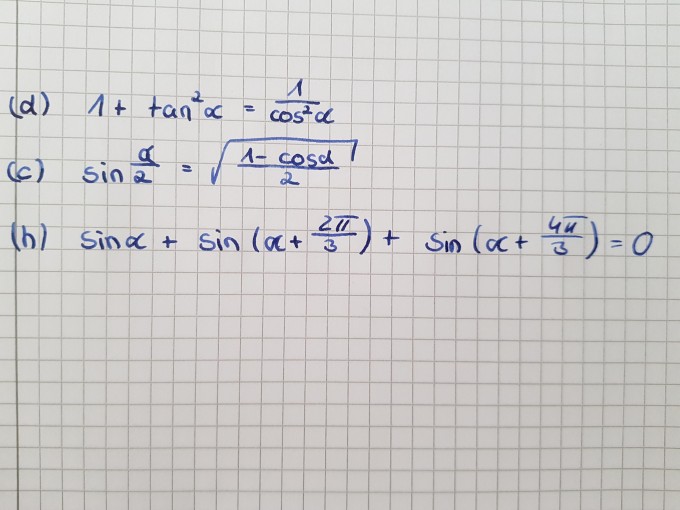 (d) 1 + tan²α = 1/cos²α
(c) sin α/2 = √((1 - cosα)/2)
(h) sinα + sin (α + 2π/3) + sin (α + 4π/3) = 0